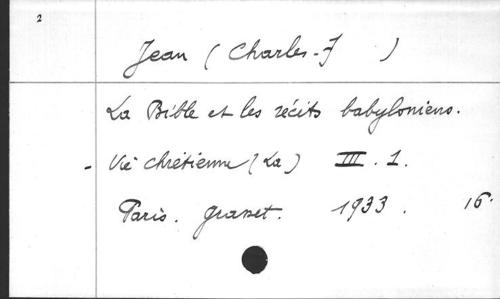 2
Jean (Charles-J )
La Bible et les récits babyloniens.
- Vie chrétienne (La) III. 1.
Paris. Grasset. 1933. 16.